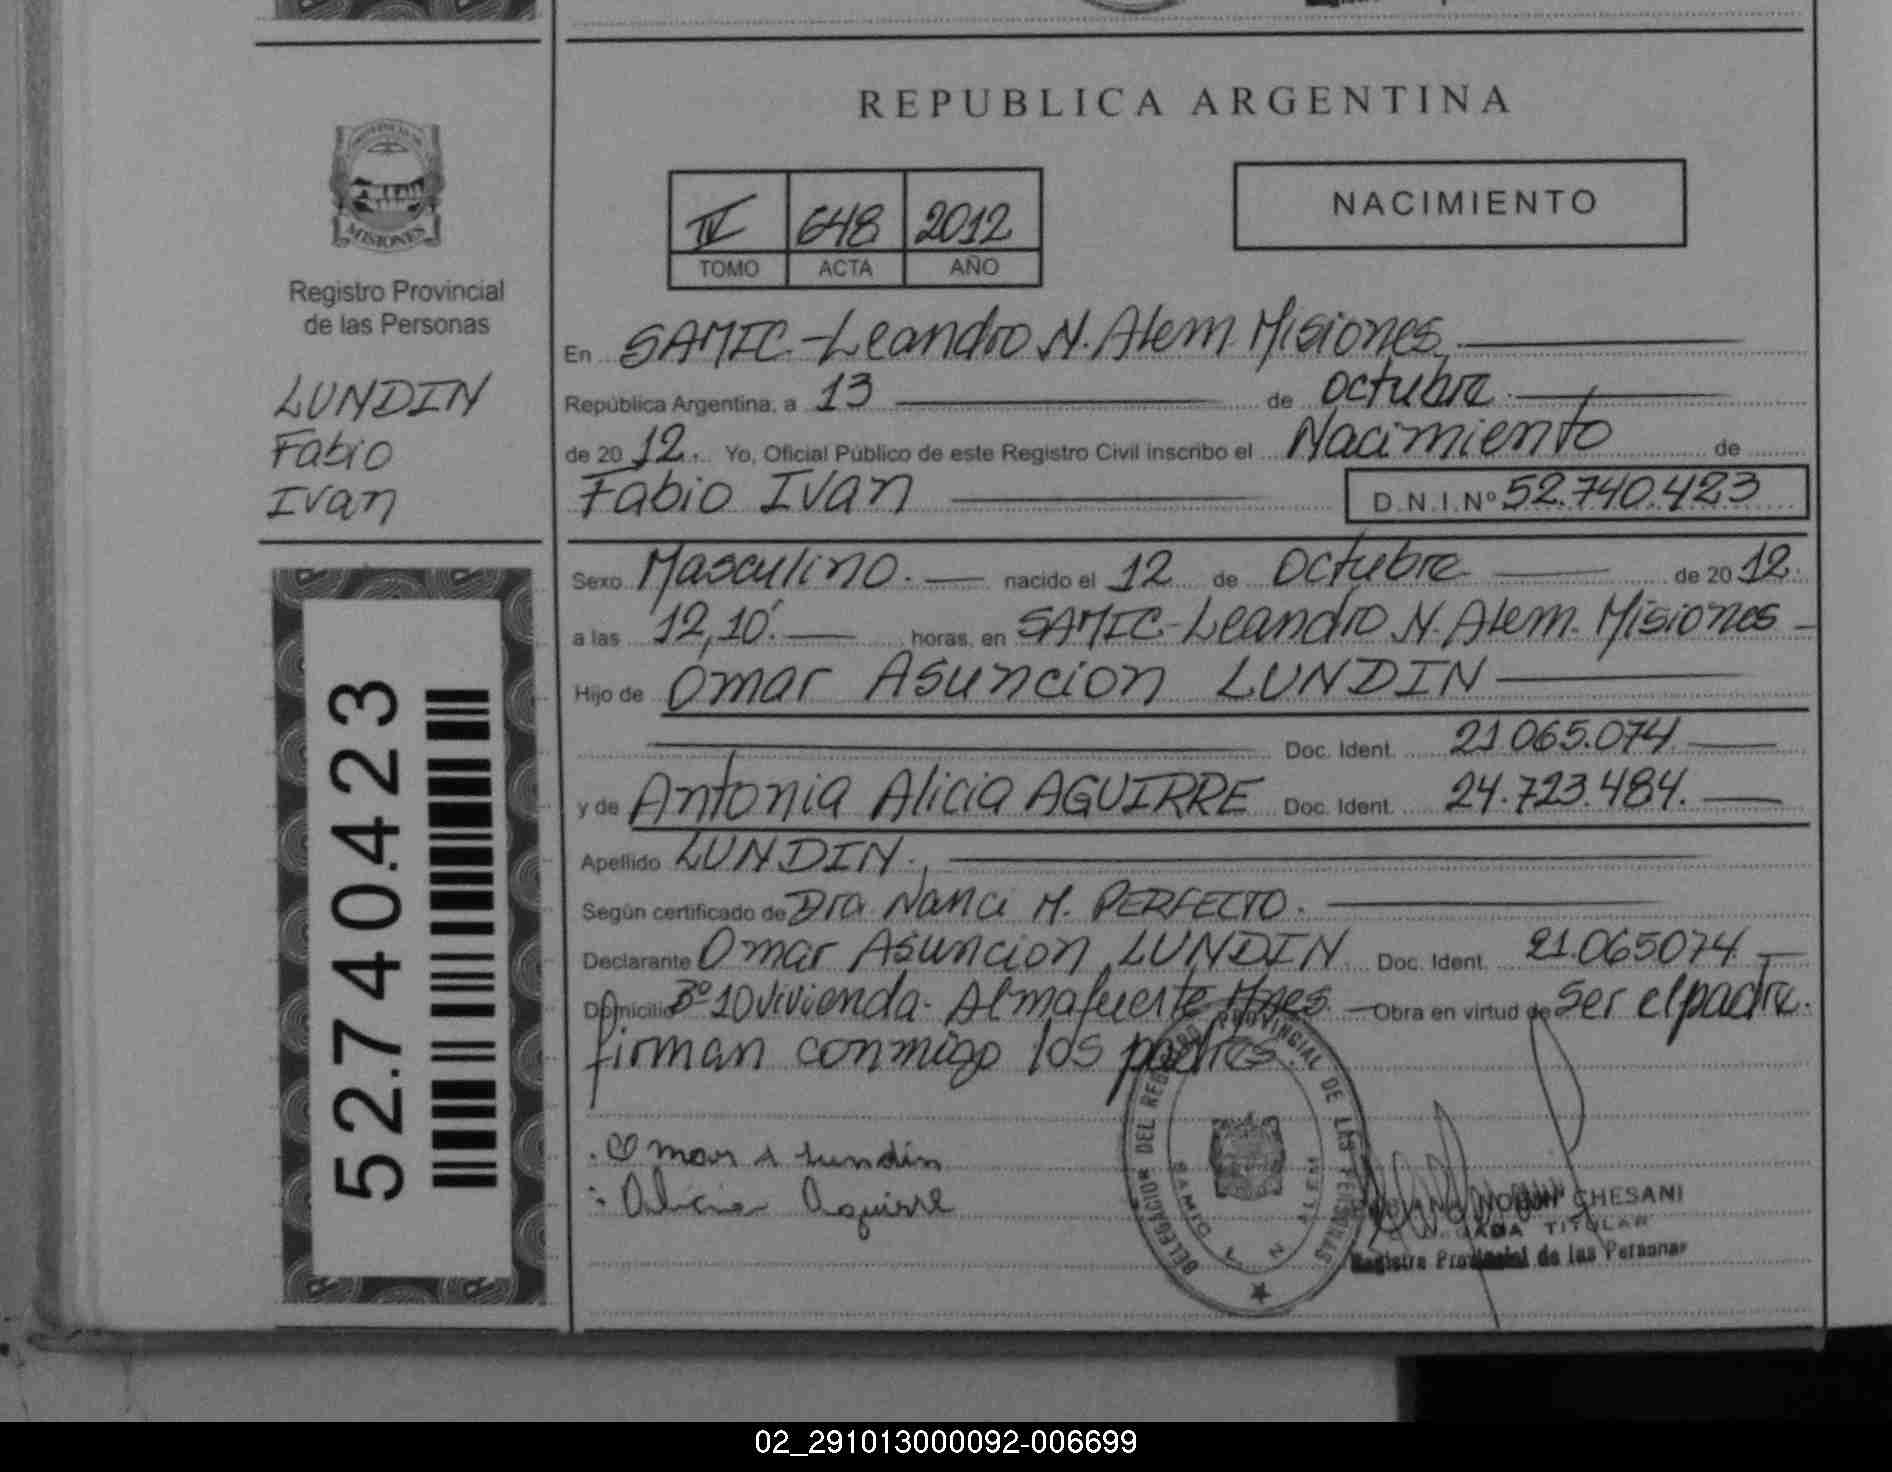 REPUBLICA ARGENTINA
MISIONES
Registro Provincial
de las Personas
LUNDIN
Fabio
Ivan
52.740.423
IV 648 2012
TOMO ACTA AÑO
NACIMIENTO
En SAMIC-Leandro N. Alem Misiones
República Argentina, a 13 de octubre
de 2012. Yo, Oficial Público de este Registro Civil inscribo el Nacimiento de
Fabio Ivan D.N.I.Nº 52.740.423
Sexo Masculino. nacido el 12 de Octubre de 2012.
a las 12,10'. horas, en SAMIC-Leandro N. Alem. Misiones
Hijo de Omar Asuncion LUNDIN
Doc. Ident. 21.065.074.
y de Antonia Alicia AGUIRRE Doc. Ident. 24.723.484.
Apellido LUNDIN.
Según certificado de Dra. Nanci M. PERFECTO.
Declarante Omar Asuncion LUNDIN Doc. Ident. 21.065074
Domicilio Bº 10 Vivienda. Almafuerte Mnes. Obra en virtud de ser el padre.
firman conmigo los padres.
Omar A Lundin
Alicia Aguirre
DELEGACION DEL REGISTRO PROVINCIAL DE LAS PERSONAS
SAMIC L. N. ALEM
CHESANI
TITULAR
Registro Provincial de las Personas
02_291013000092-006699